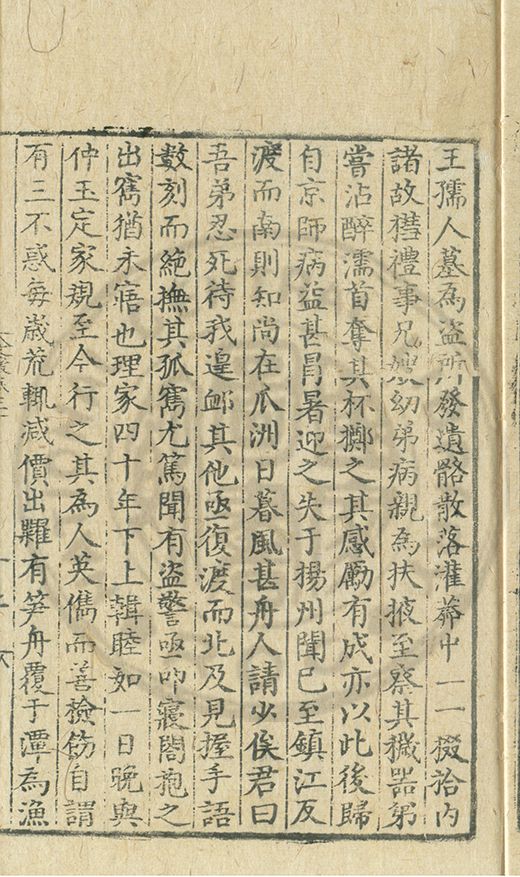 王孺人墓為盗所發遺骼散落灌莽中一一掇拾内
諸故𥞊禮事兄嫂幼弟病親為扶掖至察其穢器弟
嘗沾醉濡首奪其杯擲之其感勵有成亦以此後歸
自京師病益甚冒暑迎之失于揚州聞已至鎮江反
渡而南則知尚在瓜洲日暮風甚舟人請少俟君曰
吾弟忍死待我遑卹其他亟復渡而北及見握手語
數刻而絶撫其孤寯尤篤聞有盗警亟叩寢閤抱之
出寯猶未寤也理家四十年下上輯睦如一日晚與
仲玉定家規至今行之其為人英儁而善檢飭自謂
有三不惑每歳荒輒减價出糶有笋舟覆于潭為漁